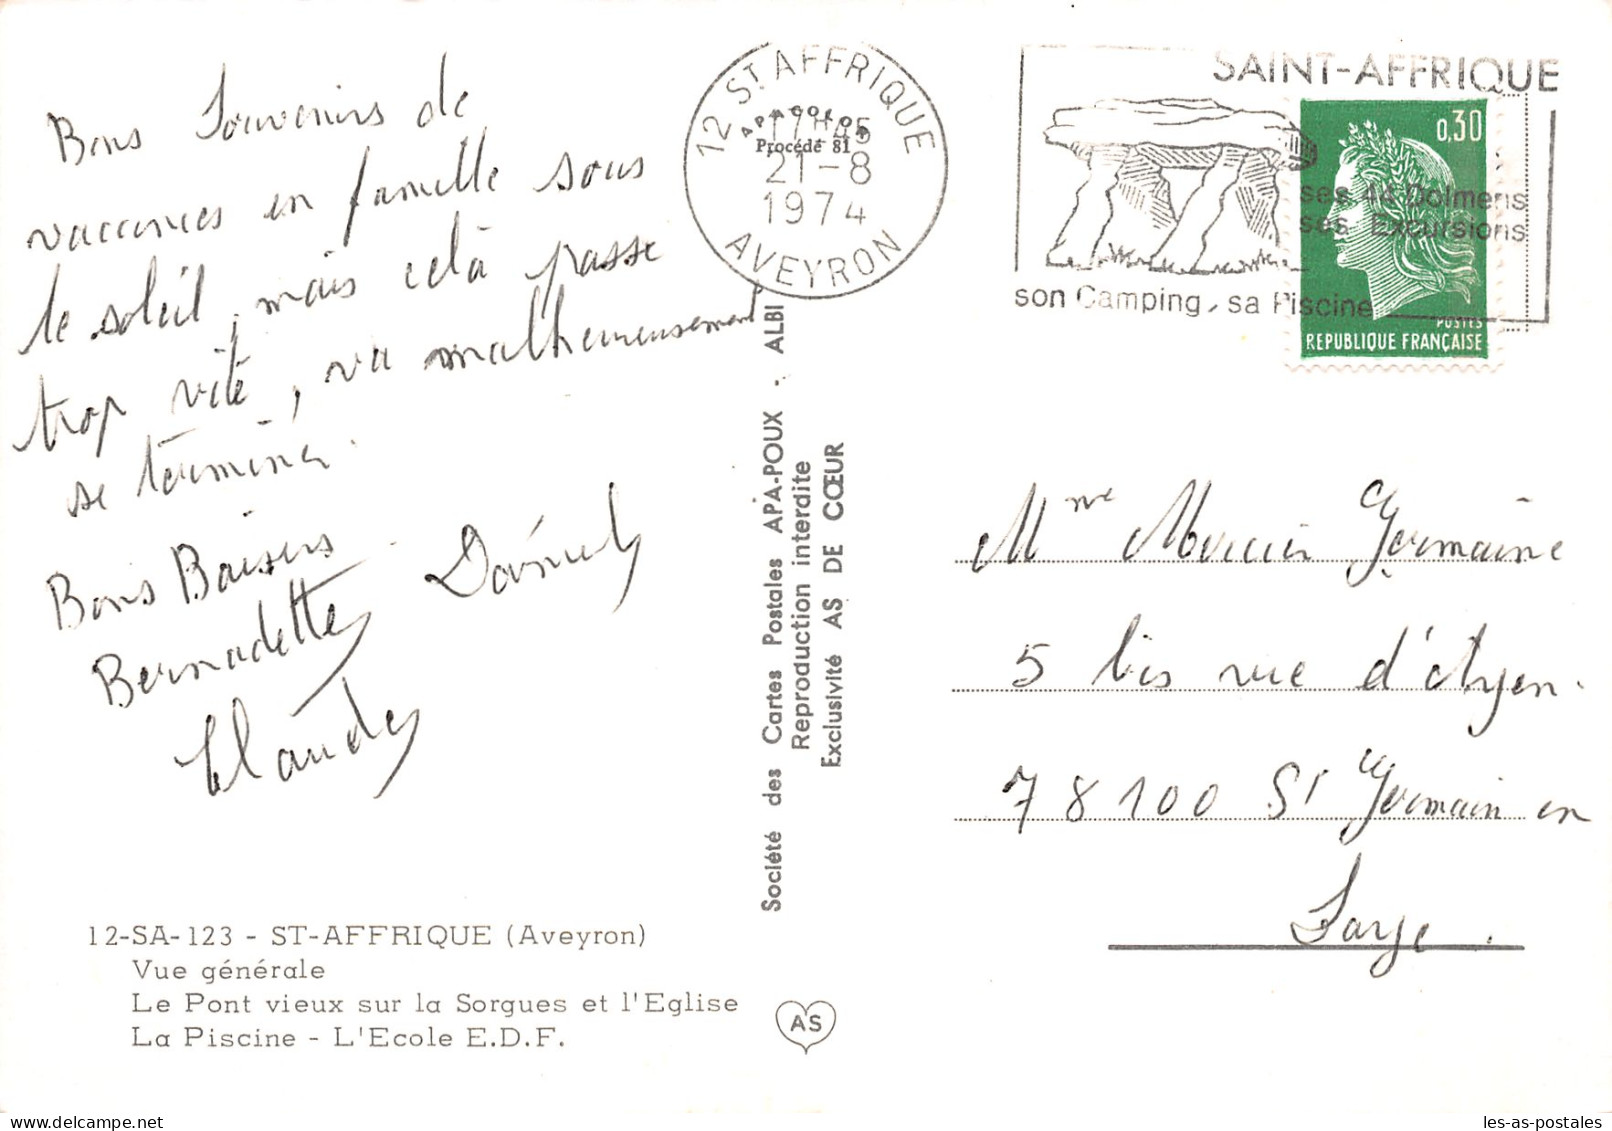 Bons Souvenirs de
vaccances en famille sous
le soleil, mais celà passe
trop vite, va malheureusement
se terminer.
Bons Baisers
Bernadette Daniel
Claude
12-SA-123 - ST-AFFRIQUE (Aveyron)
Vue générale
Le Pont vieux sur la Sorgues et l'Eglise
La Piscine - L'Ecole E.D.F.
Société des Cartes Postales APA-POUX - ALBI
Reproduction interdite
Exclusivité AS DE CŒUR
AS
12 ST AFFRIQUE
APACOLOR
17H45
Procédé 81
21-8
1974
AVEYRON
SAINT-AFFRIQUE
ses 44 Dolmens
ses Excursions
son Camping, sa Piscine
0,30
POSTES
REPUBLIQUE FRANÇAISE
Mme Mercier Germaine
5 bis rue d'Ayen.
78100 St Germain en
Laye.
12-SA-123
les-as-postales